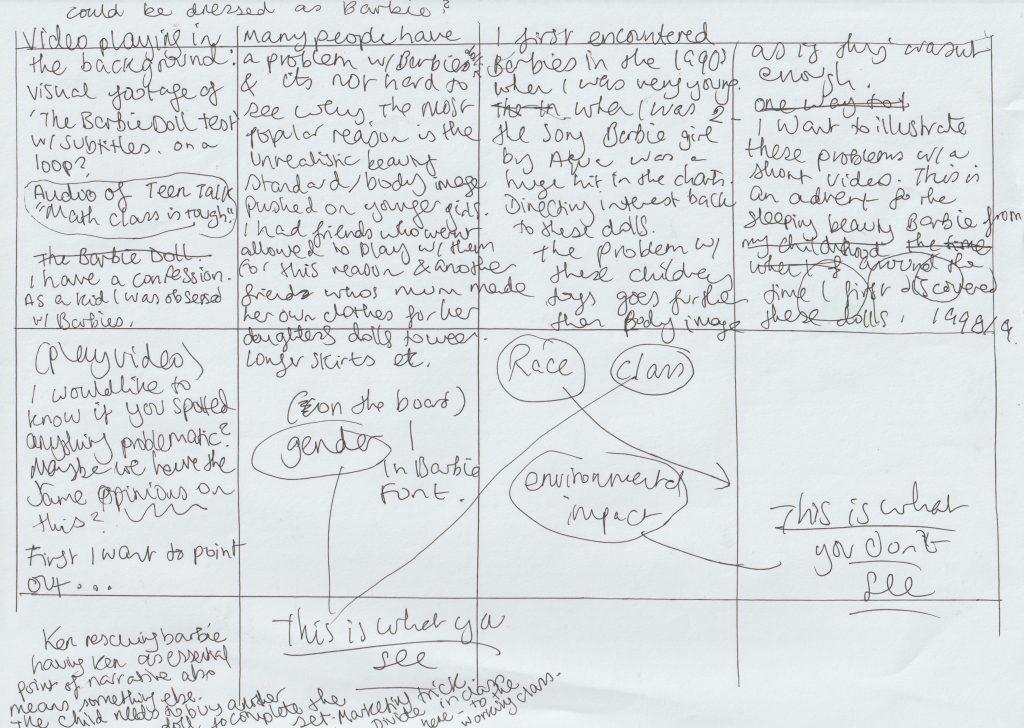 could be dressed as Barbie?
Video playing in
the background:
visual footage of
'The Barbie Doll test
w/ subtitles. on a
loop?
Audio of Teen Talk
"Math class is tough".
The Barbie Doll.
I have a confession.
As a kid I was obsessed
w/ Barbies.
Many people have
a problem w/ Barbies dolls
& its not hard to
see why. The most
popular reason is the
unrealistic beauty
standard/body image
pushed on younger girls.
I had friends who weren't
allowed to play w/ them
for this reason & another
friends whos mum made
her own clothes for her
daughters dolls to wear.
Longer skirts etc.
I first encountered
Barbies in the 1990s
when I was very young.
when I was 2-
the song Barbie girl
by Aqua was a
huge hit in the charts.
Directing interest back
to these dolls.
the problem w/
these children
toys goes further
then Body image
as if this wasnt
enough.
one way to
I want to illustrate
these problems w/ a
short video. This is
an advent for the
sleeping beauty Barbie from
my childhood the time
when I around the
time I first discovered
these dolls. 1998/9.
(play video)
I would like to
know if you spotted
anything problematic?
Maybe we have the
same opinions on
this?
First I want to point
out...
(on the board)
gender
in Barbie
Font.
Race
class
environmental
impact
This is what
you don't
see
This is what you
see
Ken rescuing barbie
having Ken as essential
point of narrative also
means something else.
The child needs to buy another
doll to complete the
set. Marketing trick.
Divide in class
here - to the
working class.